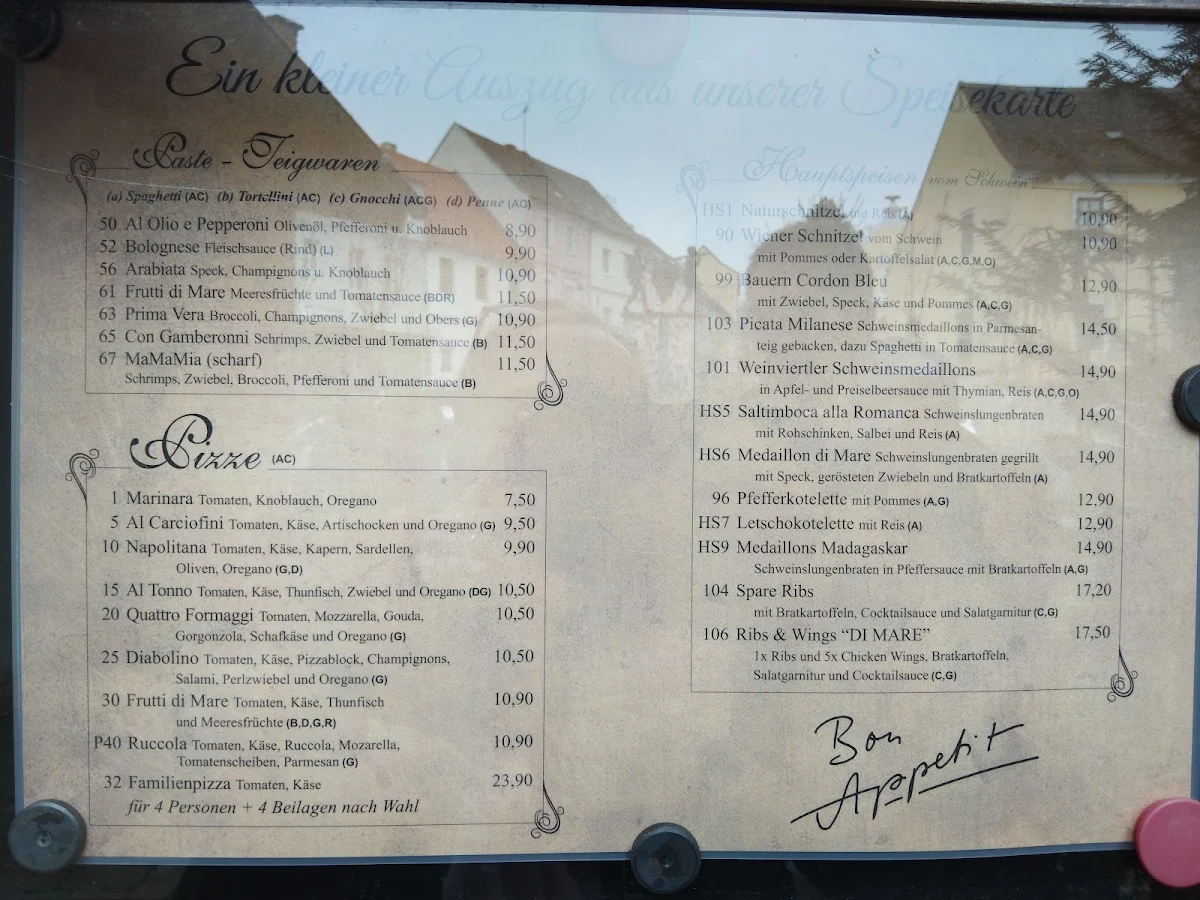 Ein kleiner Auszug aus unserer Speisekarte
Paste - Teigwaren
(a) Spaghetti (AC) (b) Tortellini (AC) (c) Gnocchi (ACG) (d) Penne (AC)
50 Al Olio e Pepperoni Olivenöl, Pfefferoni u. Knoblauch 8,90
52 Bolognese Fleischsauce (Rind) (L) 9,90
56 Arabiata Speck, Champignons u. Knoblauch 10,90
61 Frutti di Mare Meeresfrüchte und Tomatensauce (BDR) 11,50
63 Prima Vera Broccoli, Champignons, Zwiebel und Obers (G) 10,90
65 Con Gamberonni Schrimps, Zwiebel und Tomatensauce (B) 11,50
67 MaMaMia (scharf) 11,50
Schrimps, Zwiebel, Broccoli, Pfefferoni und Tomatensauce (B)
Pizze (AC)
1 Marinara Tomaten, Knoblauch, Oregano 7,50
5 Al Carciofini Tomaten, Käse, Artischocken und Oregano (G) 9,50
10 Napolitana Tomaten, Käse, Kapern, Sardellen, 9,90
Oliven, Oregano (G,D)
15 Al Tonno Tomaten, Käse, Thunfisch, Zwiebel und Oregano (DG) 10,50
20 Quattro Formaggi Tomaten, Mozzarella, Gouda, 10,50
Gorgonzola, Schafkäse und Oregano (G)
25 Diabolino Tomaten, Käse, Pizzablock, Champignons, 10,50
Salami, Perlzwiebel und Oregano (G)
30 Frutti di Mare Tomaten, Käse, Thunfisch 10,90
und Meeresfrüchte (B,D,G,R)
P40 Ruccola Tomaten, Käse, Ruccola, Mozarella, 10,90
Tomatenscheiben, Parmesan (G)
32 Familienpizza Tomaten, Käse 23,90
für 4 Personen + 4 Beilagen nach Wahl
Hauptspeisen vom Schwein
HS1 Naturschnitzel mit Reis (A) 10,90
90 Wiener Schnitzel vom Schwein 10,90
mit Pommes oder Kartoffelsalat (A,C,G,M,O)
99 Bauern Cordon Bleu 12,90
mit Zwiebel, Speck, Käse und Pommes (A,C,G)
103 Picata Milanese Schweinsmedaillons in Parmesan- 14,50
teig gebacken, dazu Spaghetti in Tomatensauce (A,C,G)
101 Weinviertler Schweinsmedaillons 14,90
in Apfel- und Preiselbeersauce mit Thymian, Reis (A,C,G,O)
HS5 Saltimboca alla Romanca Schweinslungenbraten 14,90
mit Rohschinken, Salbei und Reis (A)
HS6 Medaillon di Mare Schweinslungenbraten gegrillt 14,90
mit Speck, gerösteten Zwiebeln und Bratkartoffeln (A)
96 Pfefferkotelette mit Pommes (A,G) 12,90
HS7 Letschokotelette mit Reis (A) 12,90
HS9 Medaillons Madagaskar 14,90
Schweinslungenbraten in Pfeffersauce mit Bratkartoffeln (A,G)
104 Spare Ribs 17,20
mit Bratkartoffeln, Cocktailsauce und Salatgarnitur (C,G)
106 Ribs & Wings “DI MARE” 17,50
1x Ribs und 5x Chicken Wings, Bratkartoffeln,
Salatgarnitur und Cocktailsauce (C,G)
Bon
Appetit